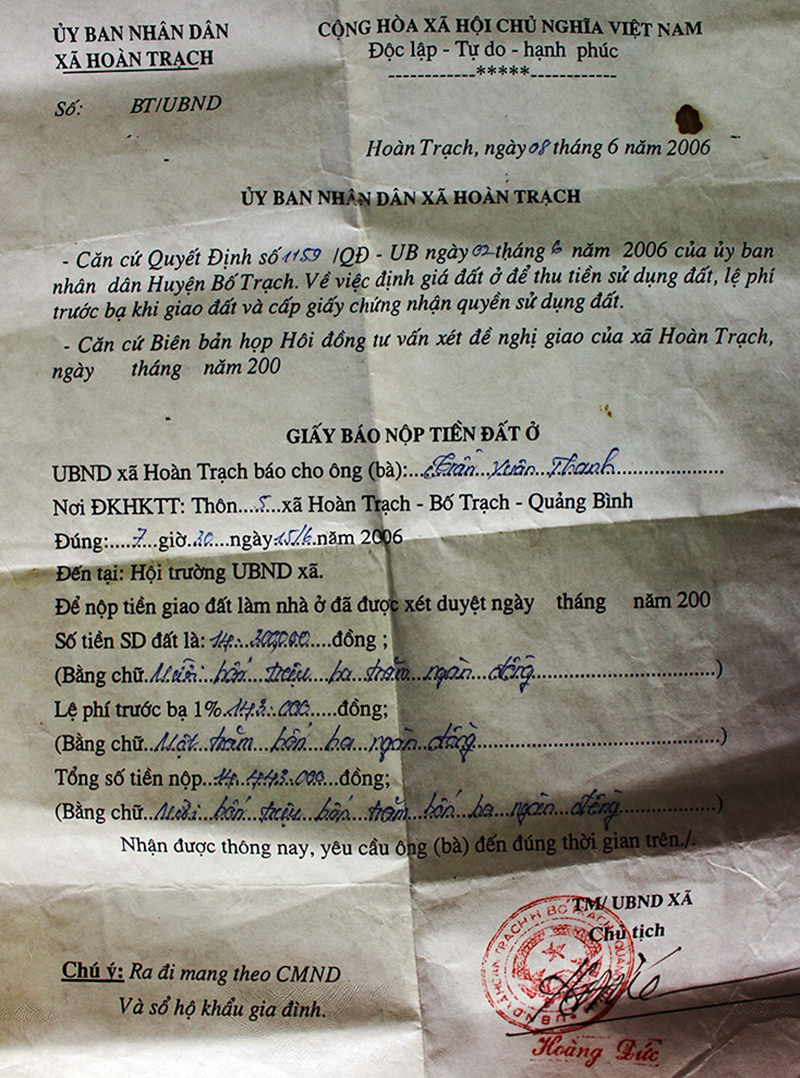 ỦY BAN NHÂN DÂN
XÃ HOÀN TRẠCH
CỘNG HÒA XÃ HỘI CHỦ NGHĨA VIỆT NAM
Độc lập - Tự do - hạnh phúc
------------*****------------
Số: BT/UBND
Hoàn Trạch, ngày 08 tháng 6 năm 2006
ỦY BAN NHÂN DÂN XÃ HOÀN TRẠCH
- Căn cứ Quyết Định số 1159 /QĐ - UB ngày 02 tháng 6 năm 2006 của ủy ban
nhân dân Huyện Bố Trạch. Về việc định giá đất ở để thu tiền sử dụng đất, lệ phí
trước bạ khi giao đất và cấp giấy chứng nhận quyền sử dụng đất.
- Căn cứ Biên bản họp Hôi đồng tư vấn xét đề nghị giao của xã Hoàn Trạch,
ngày tháng năm 200
GIẤY BÁO NỘP TIỀN ĐẤT Ở
UBND xã Hoàn Trạch báo cho ông (bà):...Trần...Xuân...Thanh..................
Nơi ĐKHKTT: Thôn....5...xã Hoàn Trạch - Bố Trạch - Quảng Bình
Đúng:.....7...giờ.30....ngày 15/6.năm 2006
Đến tại: Hội trường UBND xã.
Để nộp tiền giao đất làm nhà ở đã được xét duyệt ngày tháng năm 200
Số tiền SD đất là: 14...300.000.....đồng ;
(Bằng chữ.Mười...bốn...triệu...ba...trăm...ngàn...đồng..............................)
Lệ phí trước bạ 1%.143...000.....đồng;
(Bằng chữ..Một...trăm...bốn...ba...ngàn đồng........................................)
Tổng số tiền nộp..14..443.000...đồng;
(Bằng chữ..Mười...bốn...triệu...bốn...trăm...bốn...ba...ngàn...đồng...............)
Nhận được thông nay, yêu cầu ông (bà) đến đúng thời gian trên./.
TM/ UBND XÃ
Chủ tịch
Chú ý: Ra đi mang theo CMND
Và sổ hộ khẩu gia đình.
Hoàng Đức